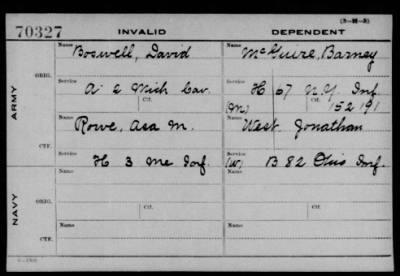 (3-28-3)
70327 INVALID DEPENDENT
Name Boswell, David Name McGuire, Barney
ARMY
ORIG.
Service A 2 Mich Cav. Service H 67 N.Y. Inf
Ctf. (M) Ctf. 152191
Name Rowe, Asa M. Name West Jonathan
CTF.
Service H 3 Me Inf. Service (W) B 82 Ohio Inf.
NAVY
ORIG.
Name Ctf. Name Ctf.
CTF.
Name Name